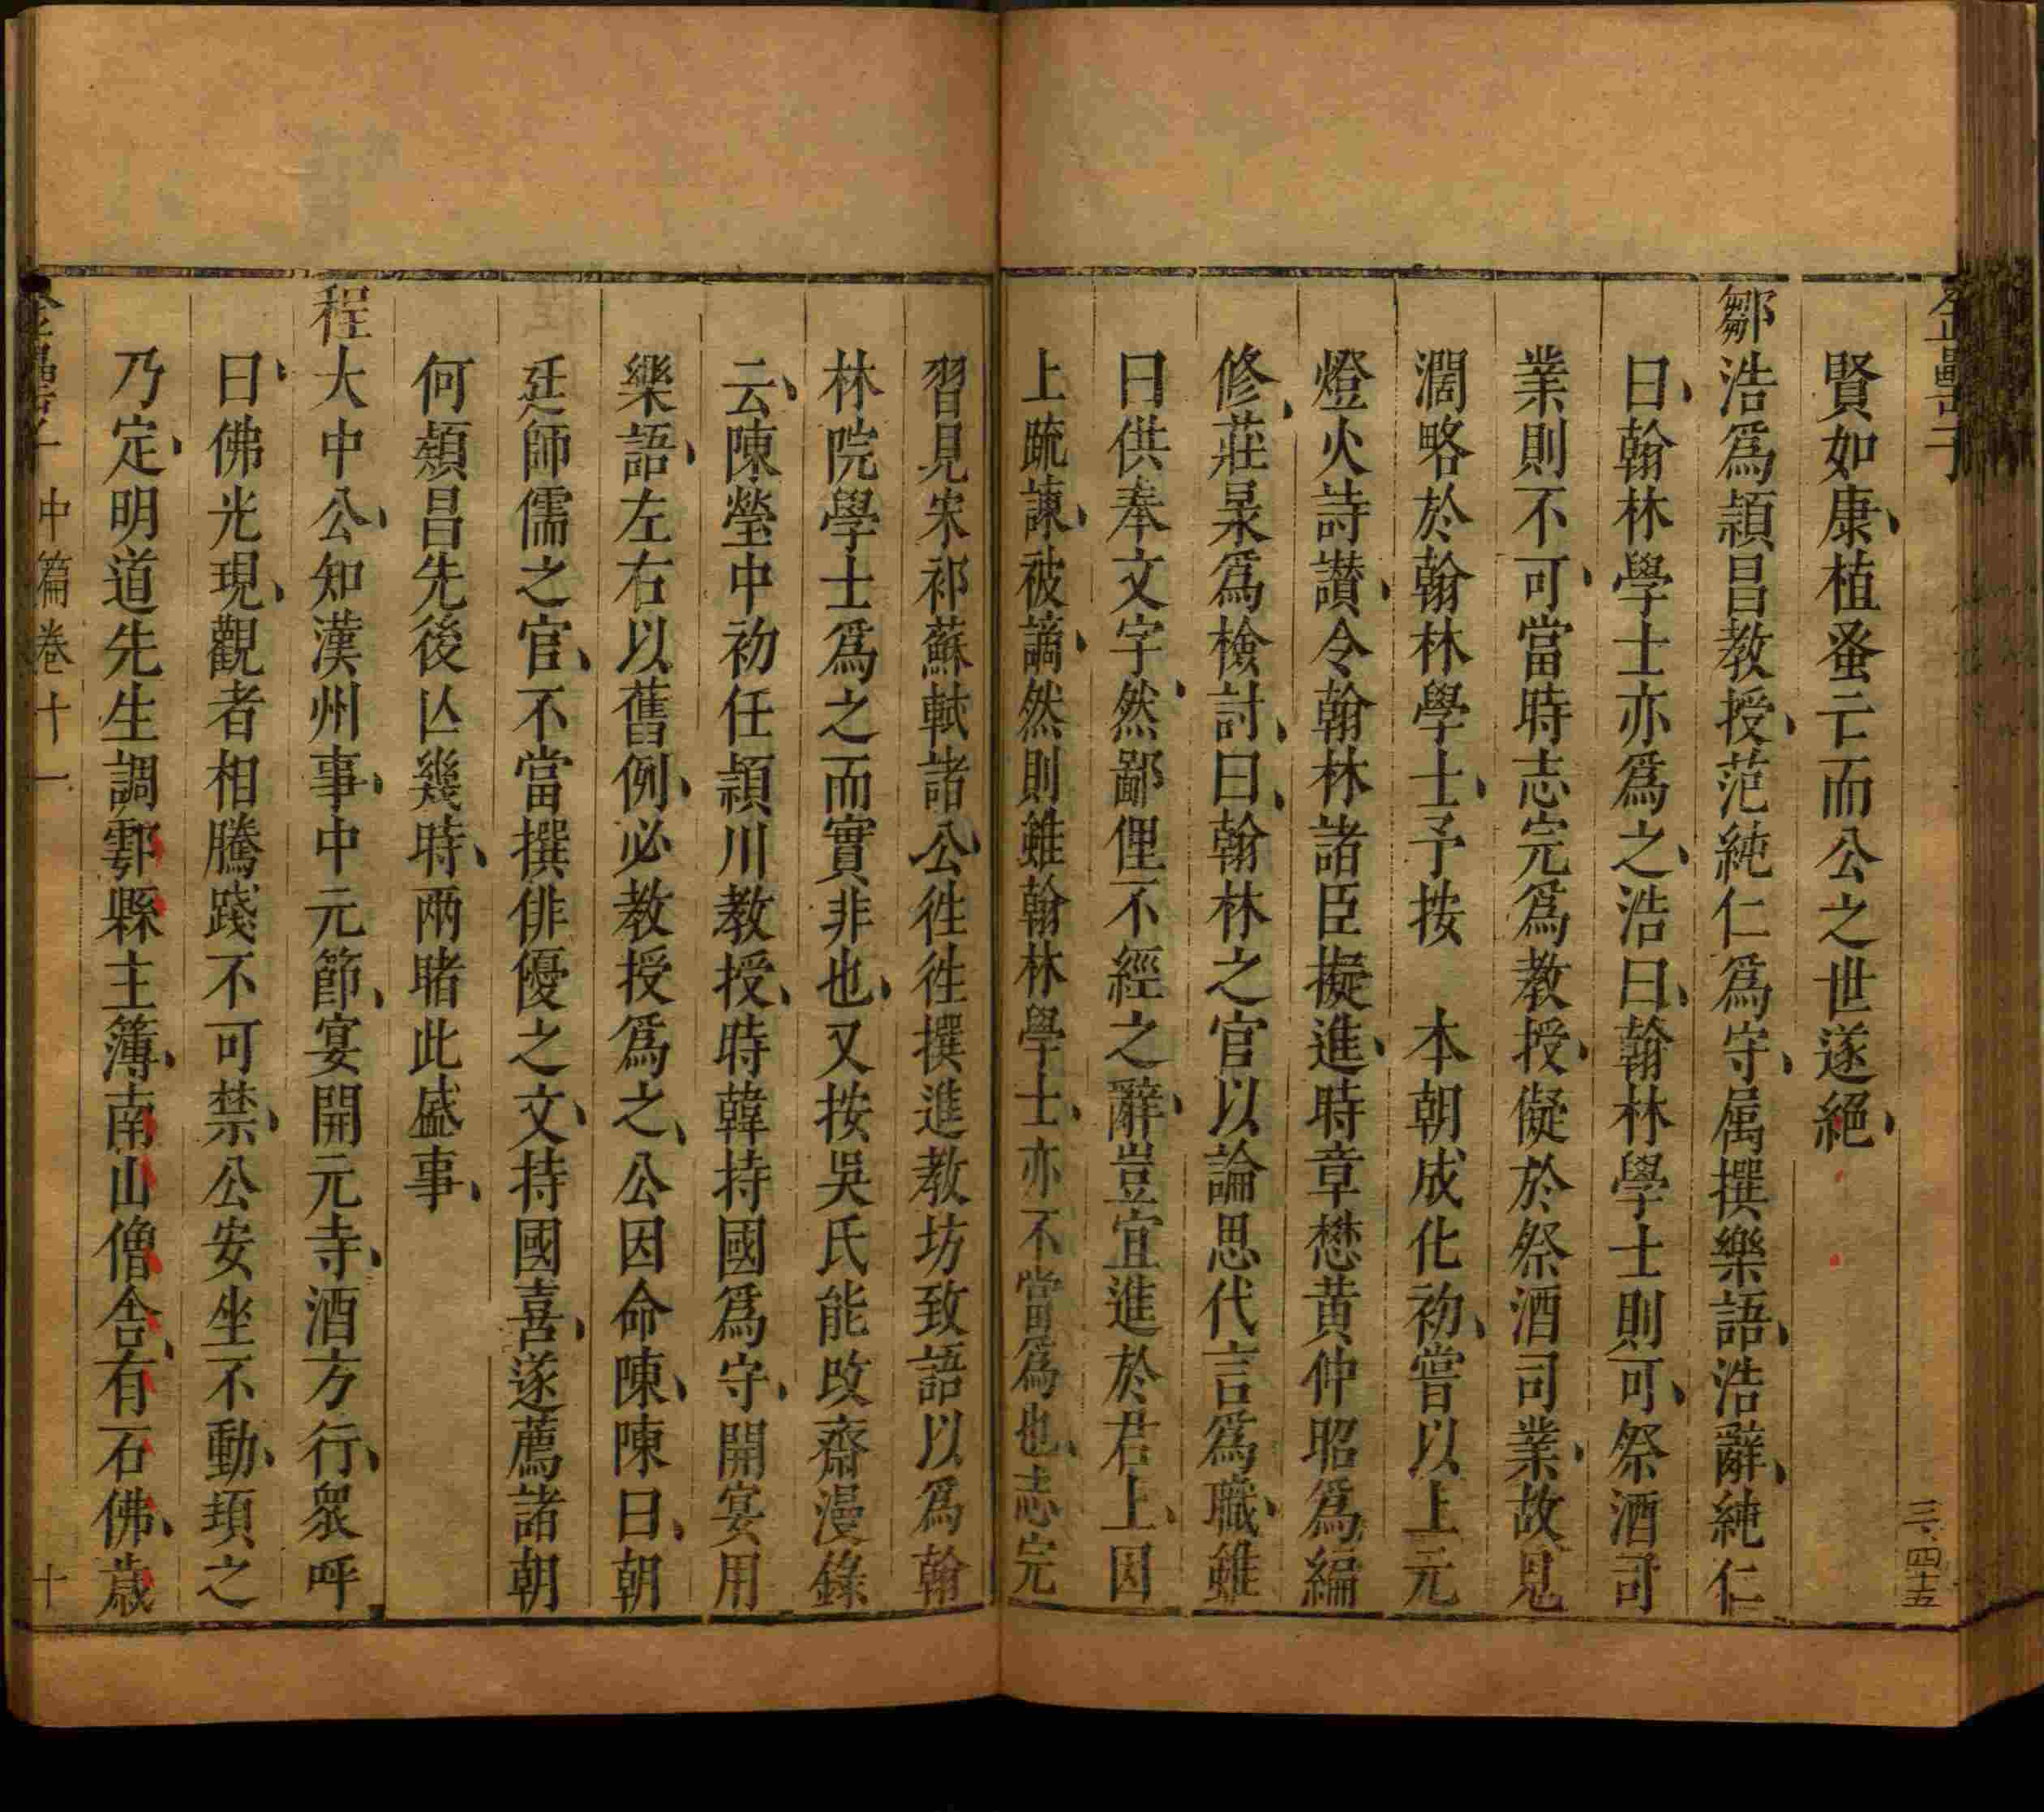 賢如康植蚤亡而公之世遂絕
鄒浩爲頴昌教授范純仁爲守屬撰樂語浩辭純仁
曰翰林學士亦爲之浩曰翰林學士則可祭酒司
業則不可當時志完爲教授儗於祭酒司業故恖
濶略於翰林學士予按　本朝成化初嘗以上元
燈火詩讃令翰林諸臣擬進時章懋黄仲昭爲編
修莊㫤爲檢討曰翰林之官以論思代言爲職雖
曰供奉文字然鄙俚不經之辭豈宜進於君上因
上疏諫被謫然則雖翰林學士亦不當爲也志完
習見宋祁蘇軾諸公徃徃撰進教坊致語以爲翰
林院學士爲之而實非也又按吳氏能攺齋漫錄
云陳瑩中初任頴川教授時韓持國爲守開宴用
樂語左右以舊例必教授爲之公因命陳陳曰朝
廷師儒之官不當撰俳優之文持國喜遂薦諸朝
何頴昌先後亾幾時兩睹此盛事
程大中公知漢州事中元節宴開元寺酒方行衆呼
曰佛光現觀者相騰踐不可禁公安坐不動頃之
乃定明道先生調鄠縣主簿南山僧舍有石佛歲
中篇卷十一
十
三、四十五